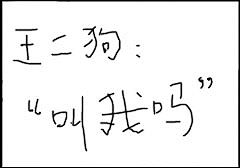 王二狗：
“叫我吗”